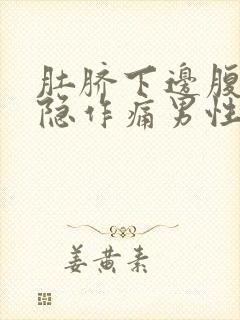 肚脐下邊腹
隐作痛男性
姜黄素